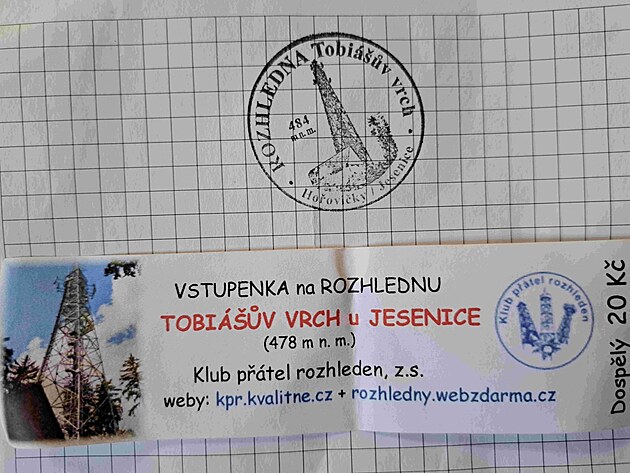 ROZHLEDNA Tobiášův vrch
484
m n. m.
Hořovičky / Jesenice
VSTUPENKA na ROZHLEDNU
TOBIÁŠŮV VRCH u JESENICE
(478 m n. m.)
Klub přátel rozhleden, z.s.
weby: kpr.kvalitne.cz + rozhledny.webzdarma.cz
Klub přátel rozhleden
Dospělý 20 Kč